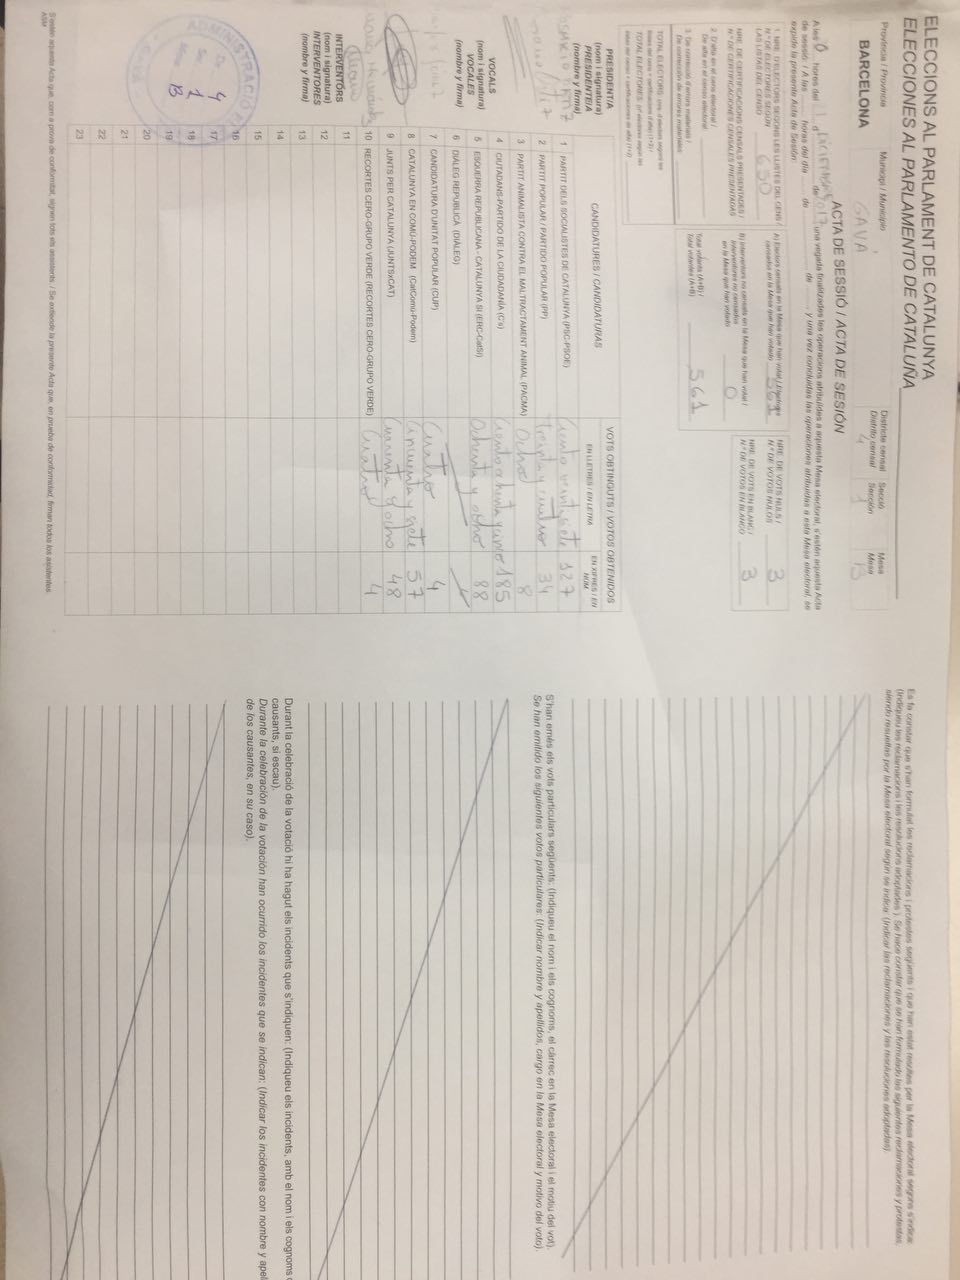 ELECCIONS AL PARLAMENT DE CATALUNYA
ELECCIONES AL PARLAMENTO DE CATALUÑA
Província / Provincia
Municipi / Municipio
Districte censal
Distrito censal
Secció
Sección
Mesa
Mesa
BARCELONA
GAVÀ
4
1
B
ACTA DE SESSIÓ / ACTA DE SESIÓN
A les hores del d de una vegada finalitzades les operacions atribuïdes a aquesta Mesa electoral, s'estén aquesta Acta
de sessió. / A las horas del día de de y una vez concluidas las operaciones atribuidas a esta Mesa electoral, se
expide la presente Acta de Sesión.
1. NRE. D'ELECTORS SEGONS LES LLISTES DEL CENS /
N.º DE ELECTORES SEGÚN
LAS LISTAS DEL CENSO 650
NRE. DE CERTIFICACIONS CENSALS PRESENTADES /
N.º DE CERTIFICACIONES CENSALES PRESENTADAS
2. D'alta en el cens electoral /
De alta en el censo electoral
3. De correcció d'errors materials /
De corrección de errores materiales
A) Electors censats en la Mesa que han votat / Electores
censados en la Mesa que han votado 561
B) Interventors no censats en la Mesa que han votat /
Interventores no censados
en la Mesa que han votado 0
Total votants (A+B) /
Total votantes (A+B) 561
NRE. DE VOTS NULS /
N.º DE VOTOS NULOS 3
NRE. DE VOTS EN BLANC /
N.º DE VOTOS EN BLANCO 3
PRESIDÈNCIA
(nom i signatura)
PRESIDENCIA
(nombre y firma)
VOCALS
(nom i signatura)
VOCALES
(nombre y firma)
INTERVENTORS
(nom i signatura)
INTERVENTORES
(nombre y firma)
CANDIDATURES / CANDIDATURAS
VOTS OBTINGUTS / VOTOS OBTENIDOS
EN LLETRES / EN LETRA
EN XIFRES / EN NÚM.
1 PARTIT DELS SOCIALISTES DE CATALUNYA (PSC-PSOE) Ciento veintisiete 127
2 PARTIT POPULAR / PARTIDO POPULAR (PP) treinta y cuatro 34
3 PARTIT ANIMALISTA CONTRA EL MALTRACTAMENT ANIMAL (PACMA) Ocho 8
4 CIUTADANS-PARTIDO DE LA CIUDADANÍA (C's) Ciento ochenta y cinco 185
5 ESQUERRA REPUBLICANA - CATALUNYA SÍ (ERC-CatSí) Ochenta y ocho 88
6 DIÀLEG REPUBLICÀ (DIÀLEG)
7 CANDIDATURA D'UNITAT POPULAR (CUP) Cuatro 4
8 CATALUNYA EN COMÚ-PODEM (CatComú-Podem) Cincuenta y siete 57
9 JUNTS PER CATALUNYA (JUNTSxCAT) Cuarenta y ocho 48
10 RECORTES CERO-GRUPO VERDE (RECORTES CERO-GRUPO VERDE) Cuatro 4
11
12
13
14
15
16
17
18
19
20
21
22
23
ADMINISTRACIÓ
4
1
B
S'estén aquesta Acta que, com a prova de conformitat, signen tots els assistents. / Se extiende la presente Acta que, en prueba de conformidad, firman todos los asistentes.
Es fa constar que s'han formulat les reclamacions i protestes següents i que han estat resoltes per la Mesa electoral segons s'indica:
(Indiqueu les reclamacions i les resolucions adoptades.) Se hace constar que se han formulado las siguientes reclamaciones y protestas,
siendo resueltas por la Mesa electoral según se indica: (Indicar las reclamaciones y las resoluciones adoptadas).
S'han emès els vots particulars següents: (Indiqueu el nom i els cognoms, el càrrec en la Mesa electoral i el motiu del vot).
Se han emitido los siguientes votos particulares: (Indicar nombre y apellidos, cargo en la Mesa electoral y motivo del voto).
Durant la celebració de la votació hi ha hagut els incidents que s'indiquen: (Indiqueu els incidents, amb el nom i els cognoms
causants, si escau).
Durante la celebración de la votación han ocurrido los incidentes que se indican: (Indicar los incidentes con nombre y
de los causantes, en su caso).